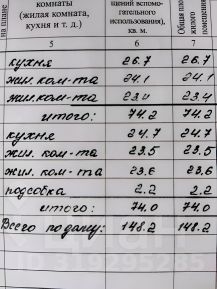 на плане
комнаты
(жилая комната,
кухня и т. д.)
щений вспомо-
гательного
использования),
кв. м.
Общая пло-
жилого
помещения
5 6 7
кухня 26.7 26.7
жил. ком-та 24.1 24.1
жил. ком-та 23.4 23.4
итого: 74.2 74.2
кухня 24.7 24.7
жил. ком-та 23.5 23.5
жил. ком-та 23.6 23.6
подсобка 2.2 2.2
итого: 74.0 74.0
Всего по дому: 148.2 148.2